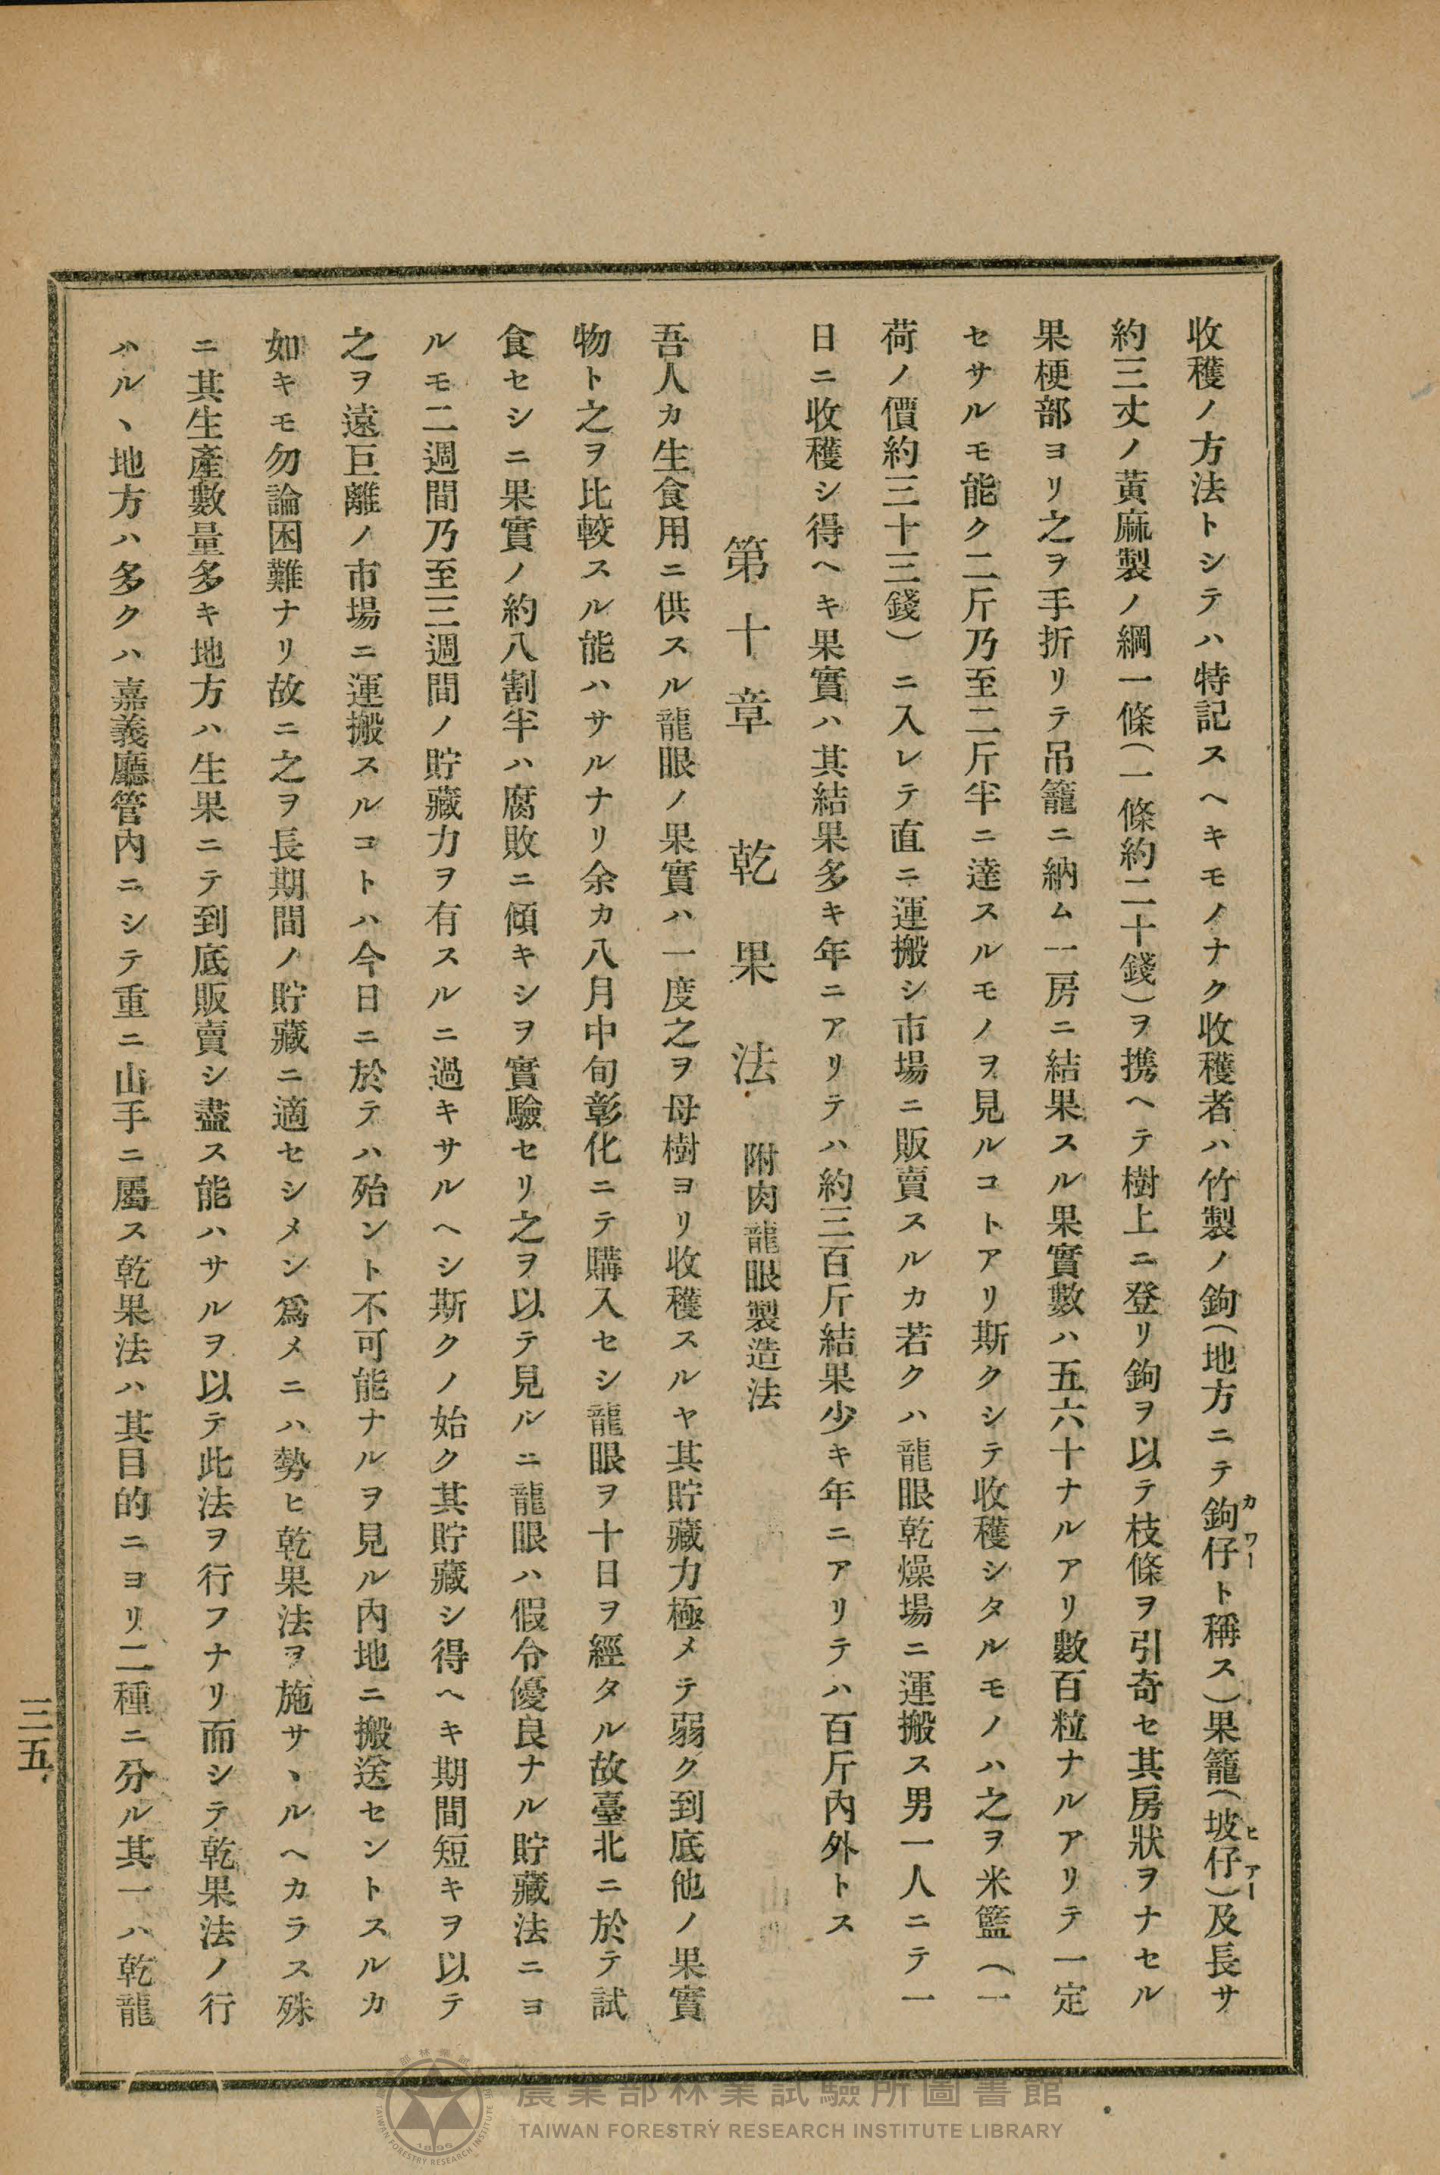 收穫ノ方法トシテハ特記スヘキモノナク收穫者ハ竹製ノ鉤（地方ニテ鉤仔ト稱ス）果籠（坡仔）及長サ
カワー
ヒアー
約三丈ノ黃麻製ノ綱一條（一條約二十錢）ヲ携ヘテ樹上ニ登リ鉤ヲ以テ枝條ヲ引奇セ其房狀ヲナセル
果梗部ヨリ之ヲ手折リテ吊籠ニ納ム一房ニ結果スル果實數ハ五六十ナルアリ數百粒ナルアリテ一定
セサルモ能ク二斤乃至二斤半ニ達スルモノヲ見ルコトアリ斯クシテ收穫シタルモノハ之ヲ米籃（一
荷ノ價約三十三錢）ニ入レテ直ニ運搬シ市場ニ販賣スルカ若クハ龍眼乾燥場ニ運搬ス男一人ニテ一
日ニ收穫シ得ヘキ果實ハ其結果多キ年ニアリテハ約三百斤結果少キ年ニアリテハ百斤內外トス
第十章 乾果法 附肉龍眼製造法
吾人カ生食用ニ供スル龍眼ノ果實ハ一度之ヲ母樹ヨリ收穫スルヤ其貯藏力極メテ弱ク到底他ノ果實
物ト之ヲ比較スル能ハサルナリ余カ八月中旬彰化ニテ購入セシ龍眼ヲ十日ヲ經タル故臺北ニ於テ試
食セシニ果實ノ約八割半ハ腐敗ニ傾キシヲ實驗セリ之ヲ以テ見ルニ龍眼ハ假令優良ナル貯藏法ニヨ
ルモ二週間乃至三週間ノ貯藏力ヲ有スルニ過キサルヘシ斯クノ始ク其貯藏シ得ヘキ期間短キヲ以テ
之ヲ遠巨離ノ市場ニ運搬スルコトハ今日ニ於テハ殆ント不可能ナルヲ見ル內地ニ搬送セントスルカ
如キモ勿論困難ナリ故ニ之ヲ長期間ノ貯藏ニ適セシメン爲メニハ勢ヒ乾果法ヲ施サヽルヘカラス殊
ニ其生產數量多キ地方ハ生果ニテ到底販賣シ盡ス能ハサルヲ以テ此法ヲ行フナリ而シテ乾果法ノ行
ハルヽ地方ハ多クハ嘉義廳管內ニシテ重ニ山手ニ屬ス乾果法ハ其目的ニヨリ二種ニ分ル其一ハ乾龍
三五
農業部林業試驗所圖書館
TAIWAN FORESTRY RESEARCH INSTITUTE LIBRARY